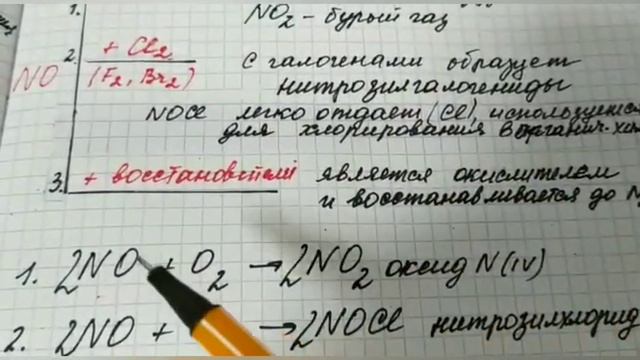 1.
NO2 - бурый газ
NO
2. + Cl2
(F2, Br2)
с галогенами образует
нитрозилгалогениды
NOCl легко отдает (Cl), используется
для хлорирования в органич.
3. + восстановители
является окислителем
и восстанавливается до N2
1. 2NO + O2 → 2NO2 оксид N(IV)
2. 2NO + → 2NOCl нитрозилхлорид